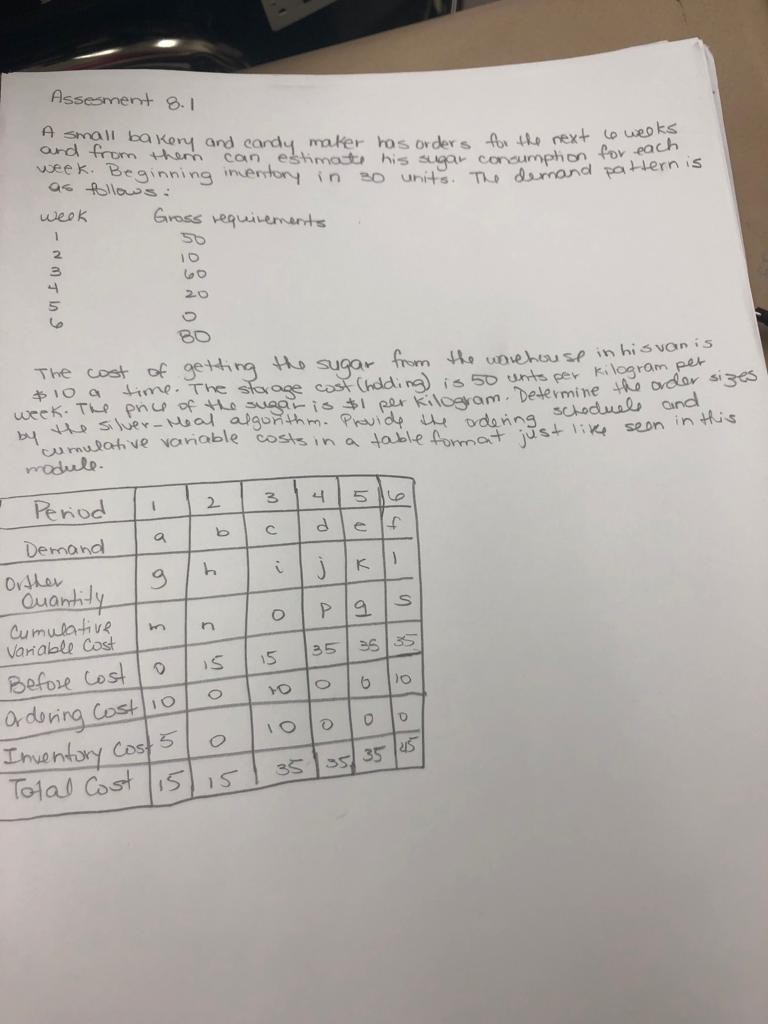 Assesment 8.1
A small bakery and candy maker has orders for the next 6 weeks
and from them can estimate his sugar consumption for each
week. Beginning inventory in 30 units. The demand pattern is
as follows:
week Gross requirements
1 50
2 10
3 60
4 20
5 0
6 80
The cost of getting the sugar from the warehouse in his van is
$10 a time. The storage cost (holding) is 50 unts per kilogram per
week. The price of the sugar is $1 per kilogram. Determine the order sizes
by the Silver-Meal algorithm. Provide the ordering schedule and
cumulative variable costs in a table format just like seen in this
module.
Period 1 2 3 4 5 6
Demand a b c d e f
Orther Quantity g h i j k l
Cumulative Variable Cost m n o p q s
Before Cost 0 15 15 35 35 35
Ordering Cost 10 0 10 0 0 10
Inventory Cost 5 0 10 0 0 0
Total Cost 15 15 35 35 35 45